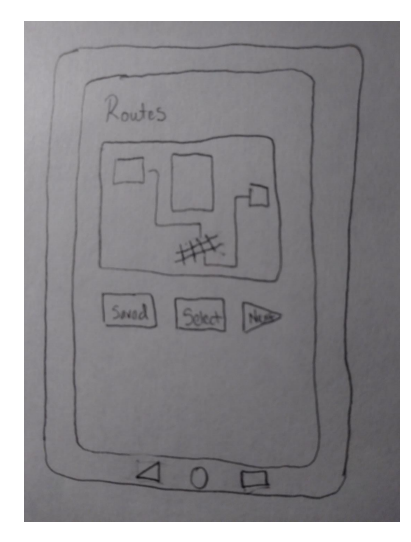 Routes
Saved Select Next